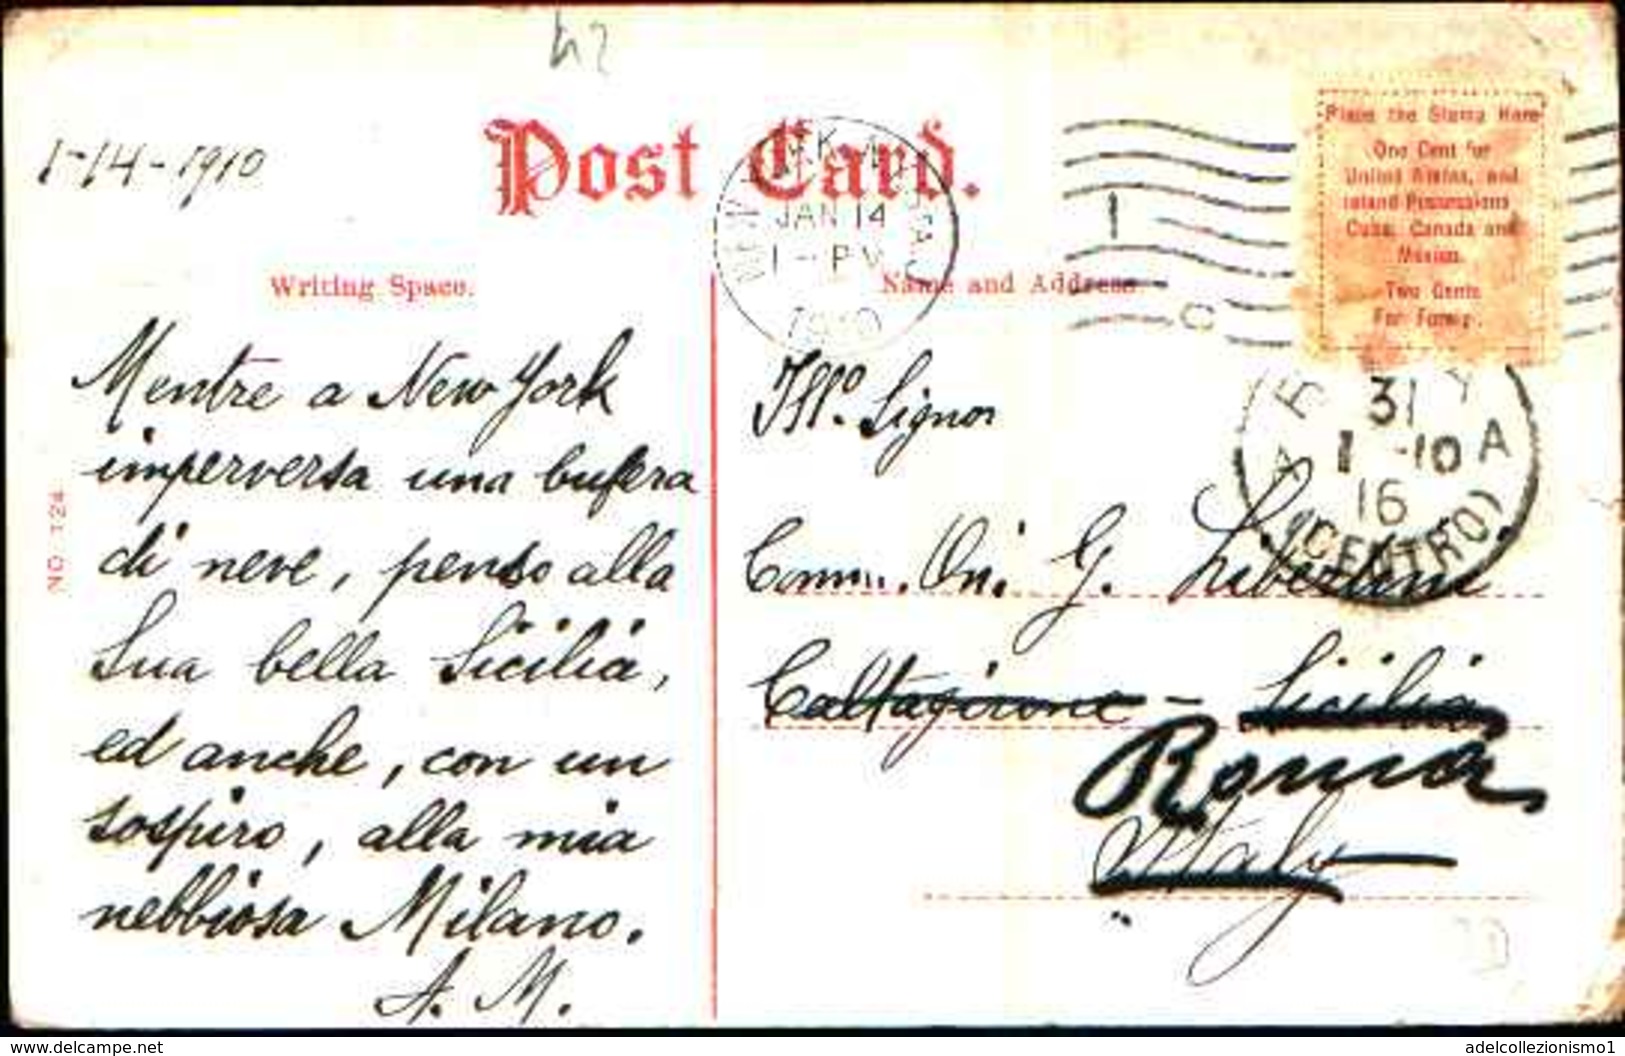 1-14-1910
Post Card.
Writing Space.
Name and Address
Place the Stamp Here
One Cent for
United States, and
Island Possessions
Cuba, Canada and
Mexico.
Two Cents
For Foreign.
JAN 14
1910
31
1 -10
16
(CENTRO)
NO 124
Mentre a New York
imperversa una bufera
di neve, penso alla
Sua bella Sicilia,
ed anche, con un
sospiro, alla mia
nebbiosa Milano.
A. M.
Illº. Signor
Comm. On. G. Libertini
Caltagirone - Sicilia
Roma
Italy
www.delcampe.net
adelcollezionismo1